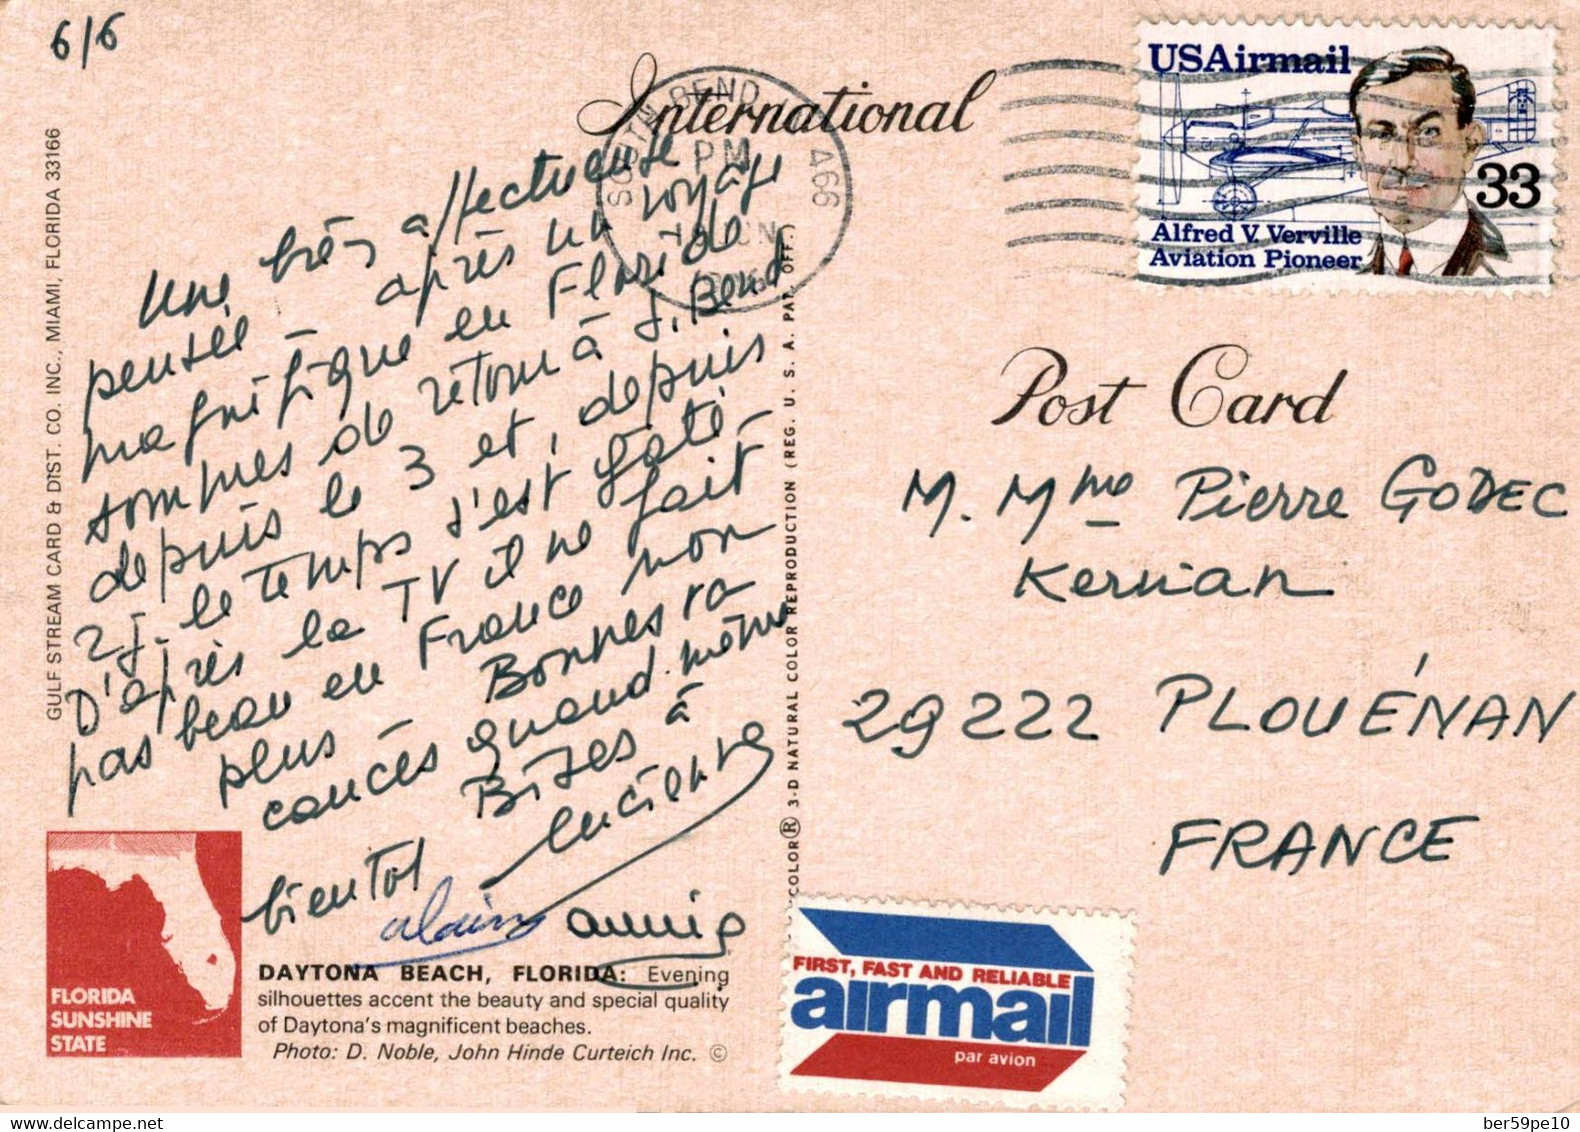 6/6
International
SOUTH BEND
PM
466
USAirmail
33
Alfred V. Verville
Aviation Pioneer
Une très affectueuse
pensée – après un voyage
magnifique en Floride
sommes de retour à S. Bend
depuis le 3 et, depuis
2 j. le temps s'est gâté –
D'après la TV il ne fait
pas beau en France non
plus – Bonnes va
cances quand même
Bises à
bientôt Lucienne
alain annie
Post Card
M. Mme Pierre GODEC
Kervian
29222 PLOUÉNAN
FRANCE
GULF STREAM CARD & DIST. CO. INC., MIAMI, FLORIDA 33166
COLOR® 3-D NATURAL COLOR REPRODUCTION (REG. U. S. A. PAT. OFF.)
FLORIDA
SUNSHINE
STATE
DAYTONA BEACH, FLORIDA: Evening
silhouettes accent the beauty and special quality
of Daytona's magnificent beaches.
Photo: D. Noble, John Hinde Curteich Inc. ©
FIRST, FAST AND RELIABLE
airmail
par avion
www.delcampe.net
ber59pe10